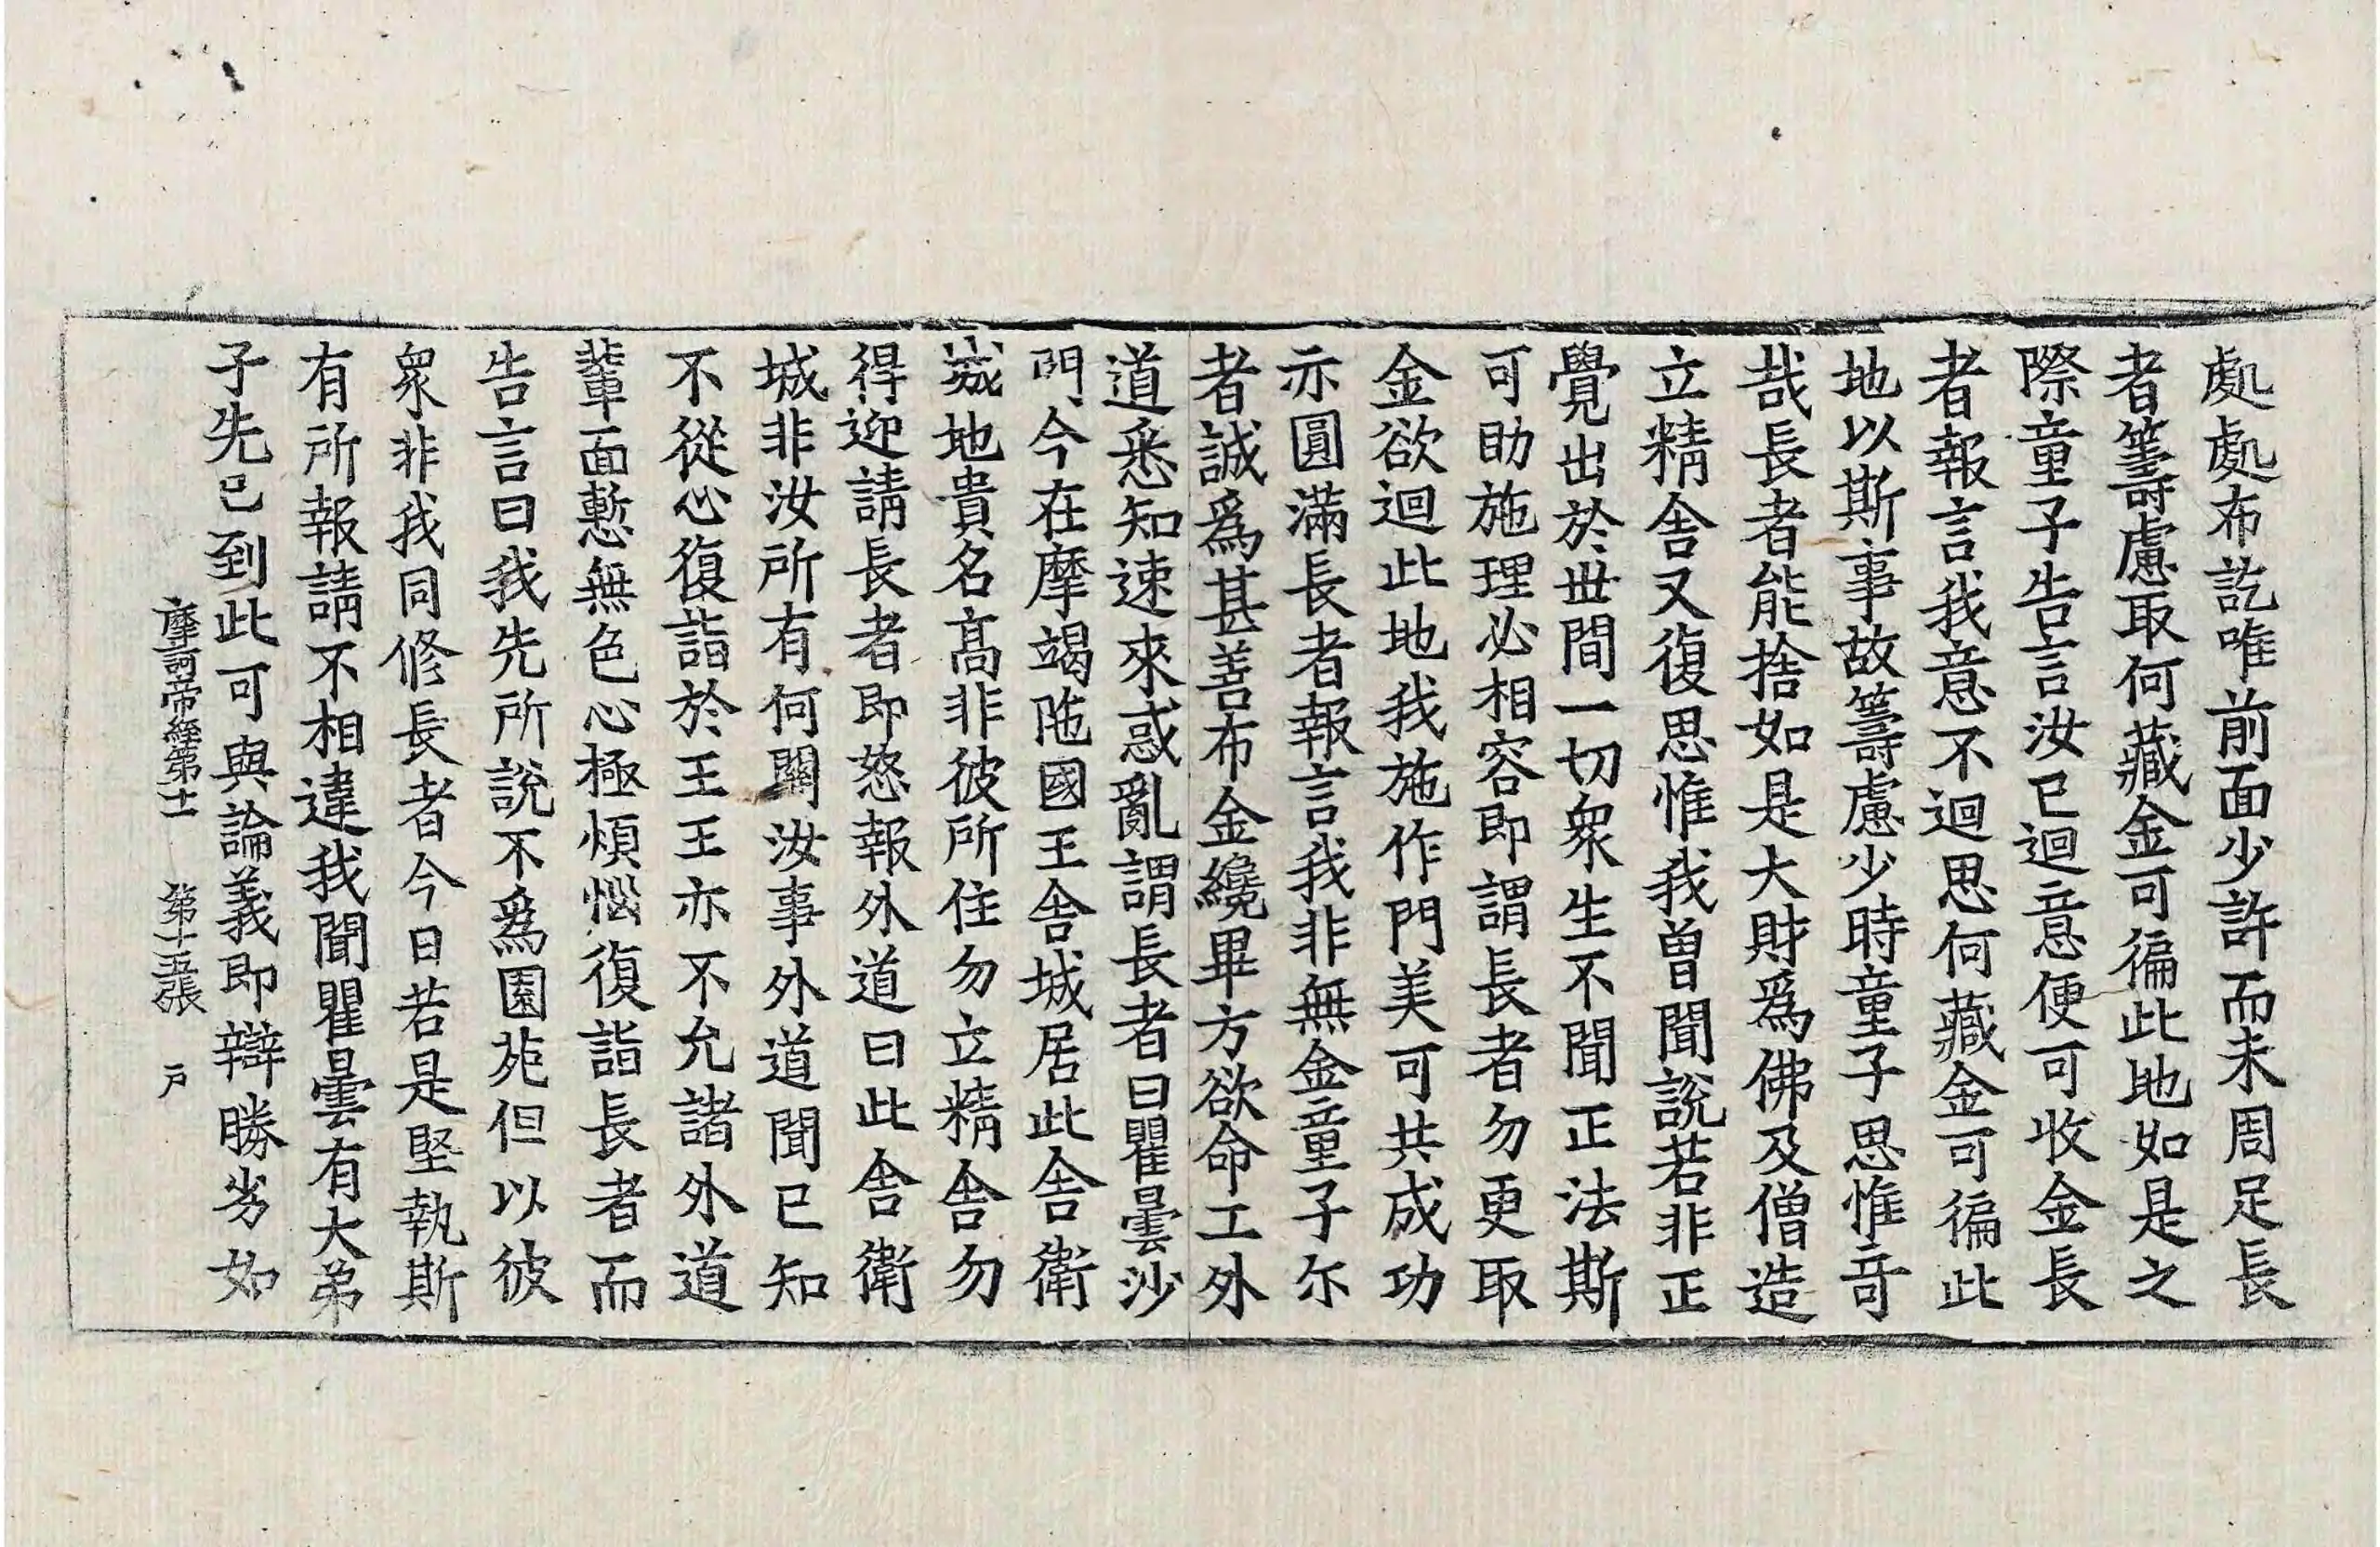 處處布訖唯前面少許而未周足長
者籌慮取何藏金可徧此地如是之
際童子告言汝已迴意便可收金長
者報言我意不迴思何藏金可徧此
地以斯事故籌慮少時童子思惟竒
哉長者能捨如是大財爲佛及僧造
立精舍又復思惟我曾聞說若非正
覺出於丗間一切衆生不聞正法斯
可助施理必相容即謂長者勿更取
金欲迴此地我施作門美可共成功
亦圓滿長者報言我非無金童子尓
者誠爲甚善布金纔畢方欲命工外
道悉知速來惑亂謂長者曰瞿曇沙
門今在摩竭陁國王舍城居此舍衛
城地貴名髙非彼所住勿立精舍勿
得迎請長者即怒報外道曰此舍衛
城非汝所有何關汝事外道聞已知
不從心復詣於王王亦不允諸外道
輩面慙無色心極煩惱復詣長者而
告言曰我先所說不爲園苑但以彼
衆非我同修長者今日若是堅執斯
有所報請不相違我聞瞿曇有大弟
子先已到此可與論義即辯勝劣如
摩訶帝經第十一 第十五張 戶